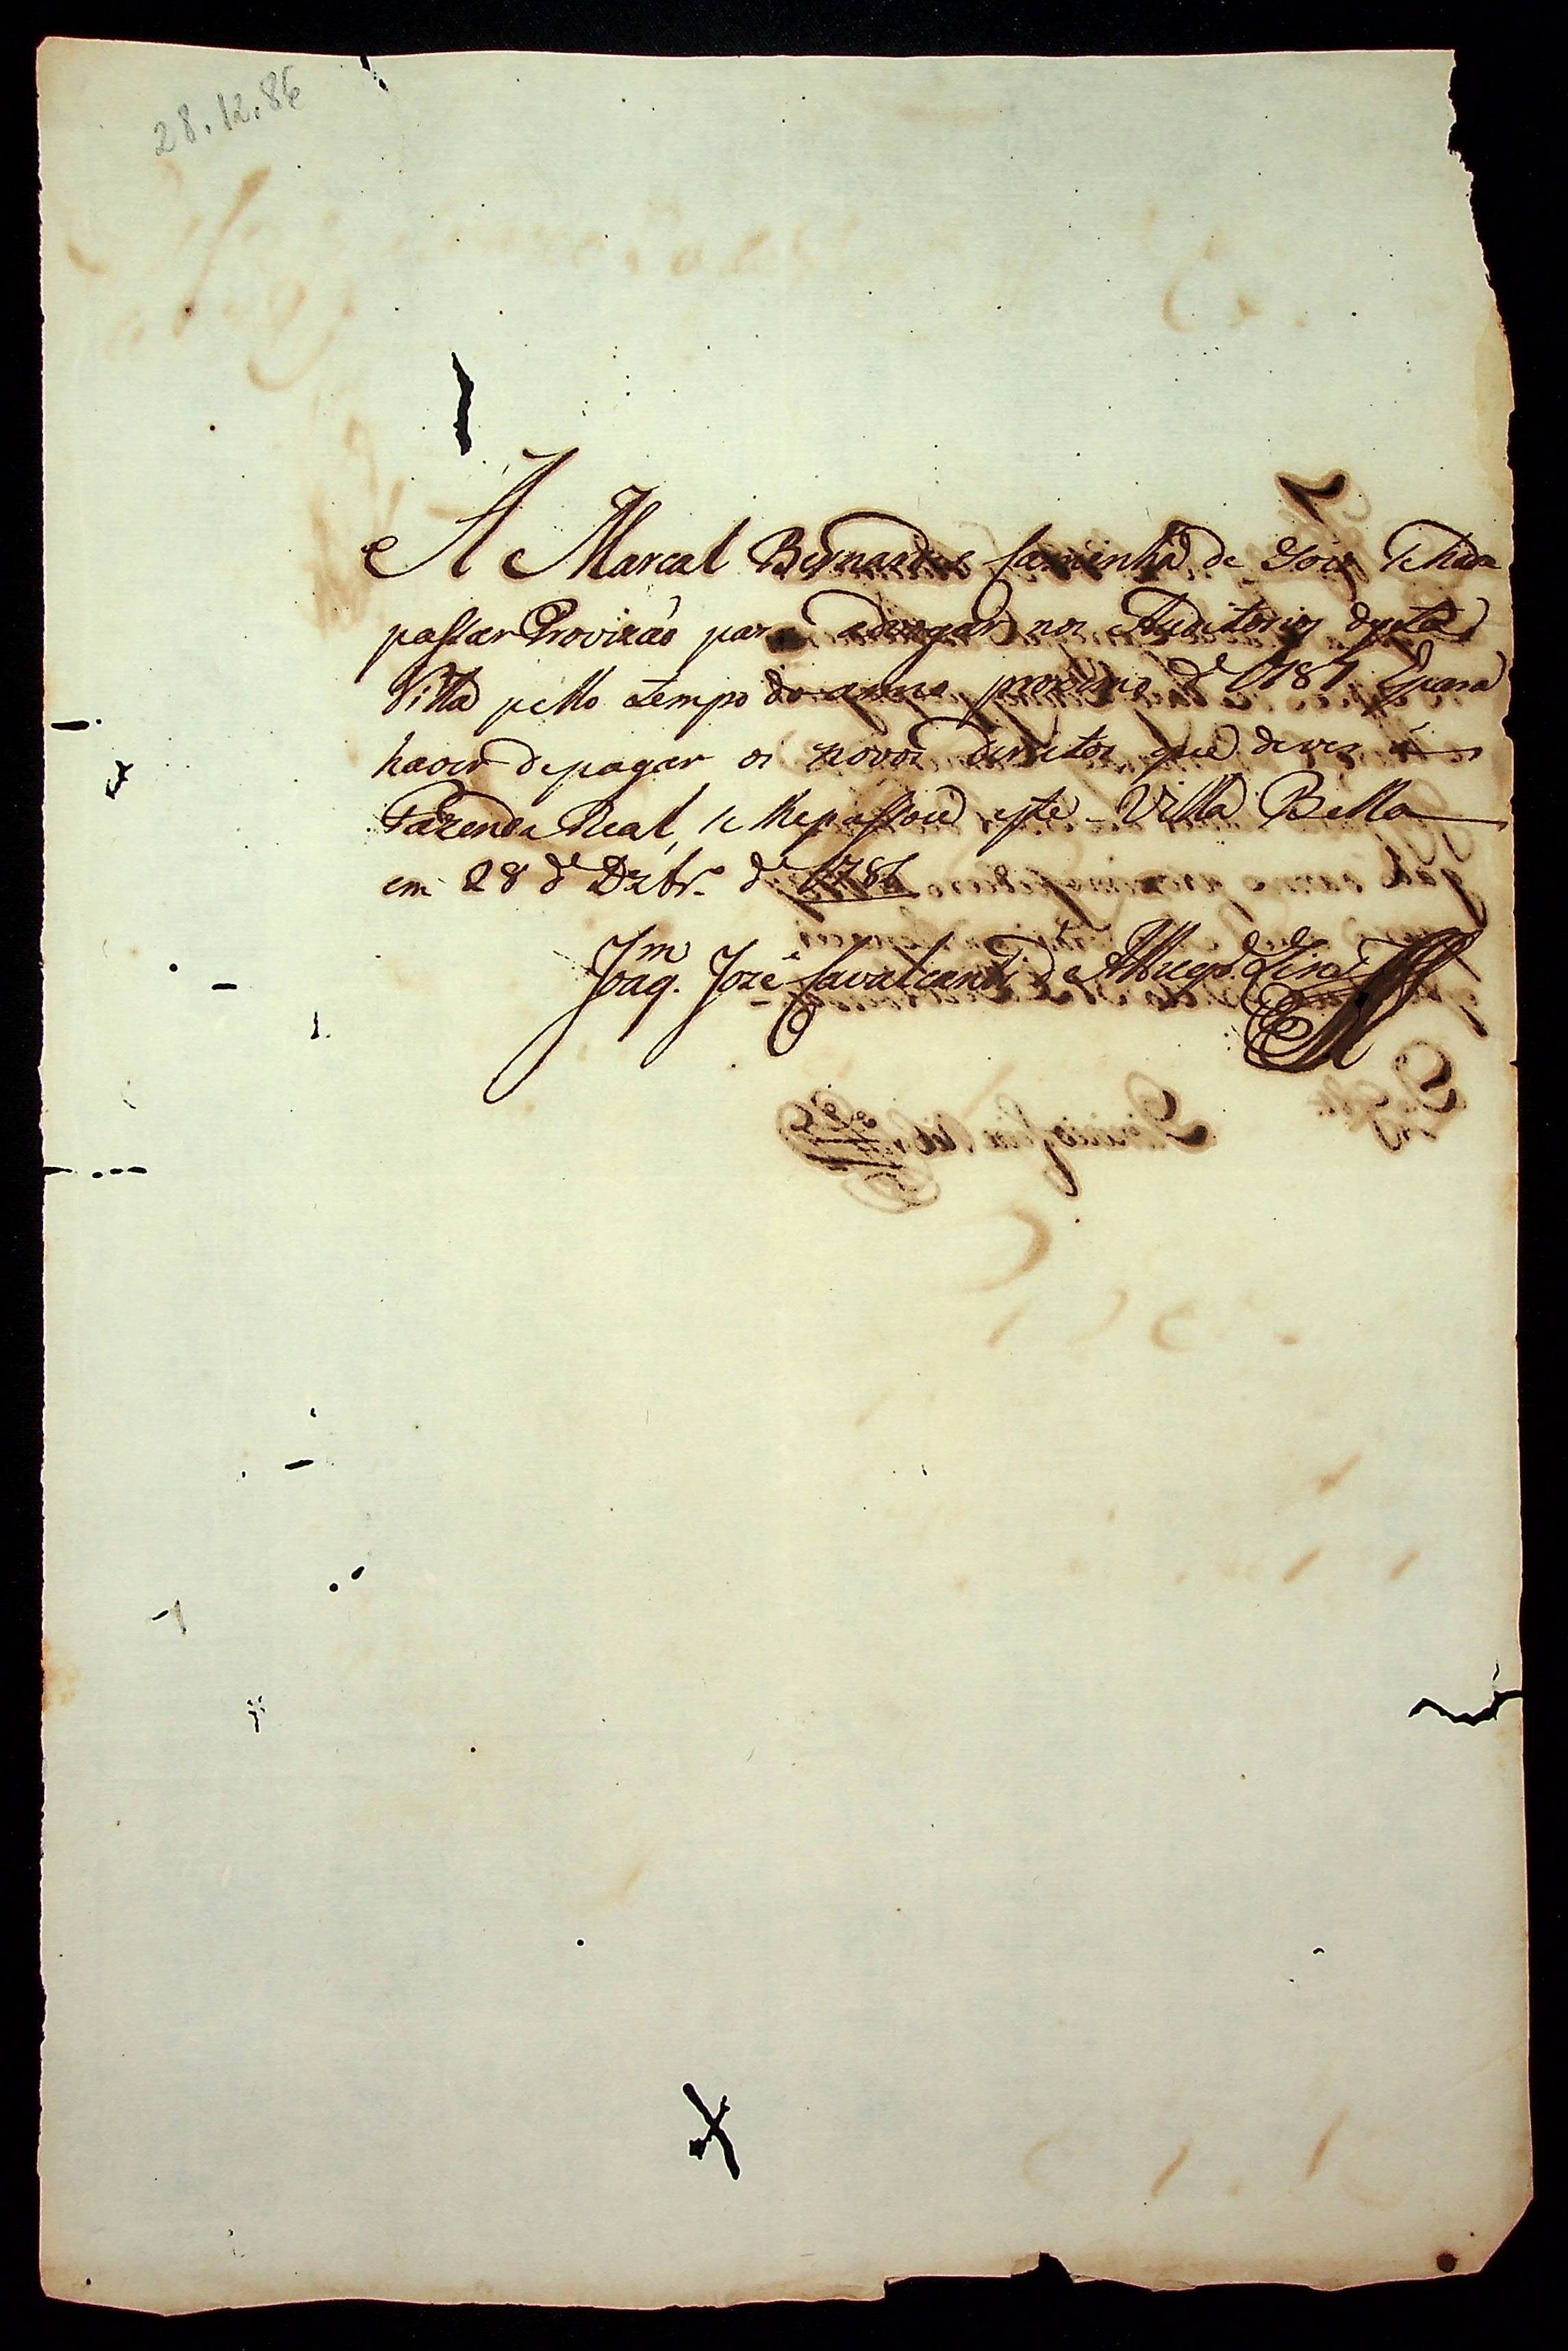 28.12.86
A Marcal Bernardes Caminha de Gois se hade
passar Provizaõ para advogar nos Auditorios desta
Villa pello tempo do anno proximo de 1787 Epara
haver depagar os novos direitos que dever á
Fazenda Real, se lhepassou este Villa Bella
em 28 de Dzbr.º de 1786
Joaq.m Jozé Cavalcanti de Albuq.e Lins